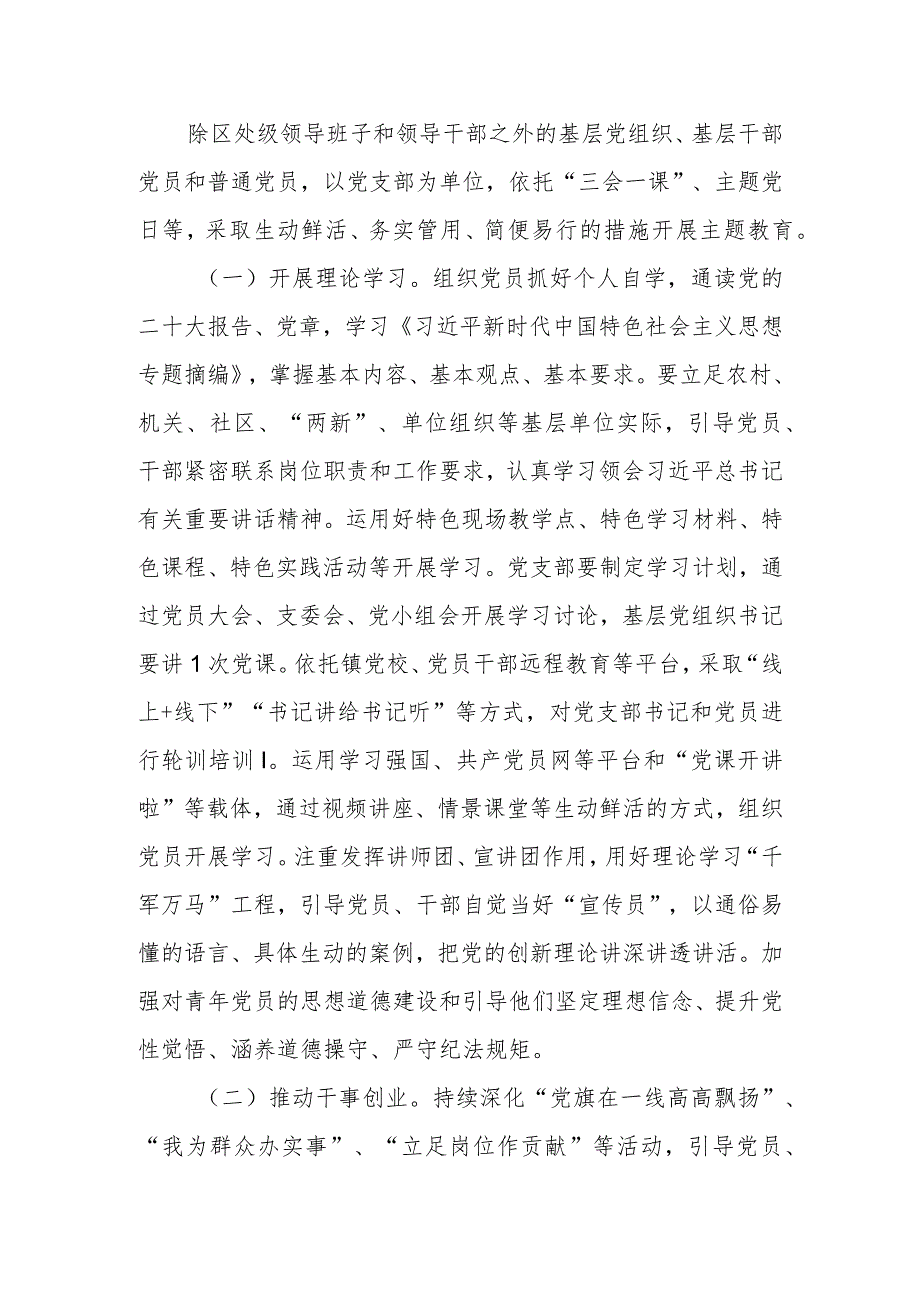 除区处级领导班子和领导干部之外的基层党组织、基层干部
党员和普通党员，以党支部为单位，依托“三会一课”、主题党
日等，采取生动鲜活、务实管用、简便易行的措施开展主题教育。
（一）开展理论学习。组织党员抓好个人自学，通读党的
二十大报告、党章，学习《习近平新时代中国特色社会主义思想
专题摘编》，掌握基本内容、基本观点、基本要求。要立足农村、
机关、社区、“两新”、单位组织等基层单位实际，引导党员、
干部紧密联系岗位职责和工作要求，认真学习领会习近平总书记
有关重要讲话精神。运用好特色现场教学点、特色学习材料、特
色课程、特色实践活动等开展学习。党支部要制定学习计划，通
过党员大会、支委会、党小组会开展学习讨论，基层党组织书记
要讲1次党课。依托镇党校、党员干部远程教育等平台，采取“线
上+线下”“书记讲给书记听”等方式，对党支部书记和党员进
行轮训培训I。运用学习强国、共产党员网等平台和“党课开讲
啦”等载体，通过视频讲座、情景课堂等生动鲜活的方式，组织
党员开展学习。注重发挥讲师团、宣讲团作用，用好理论学习“千
军万马”工程，引导党员、干部自觉当好“宣传员”，以通俗易
懂的语言、具体生动的案例，把党的创新理论讲深讲透讲活。加
强对青年党员的思想道德建设和引导他们坚定理想信念、提升党
性觉悟、涵养道德操守、严守纪法规矩。
（二）推动干事创业。持续深化“党旗在一线高高飘扬”、
“我为群众办实事”、“立足岗位作贡献”等活动，引导党员、